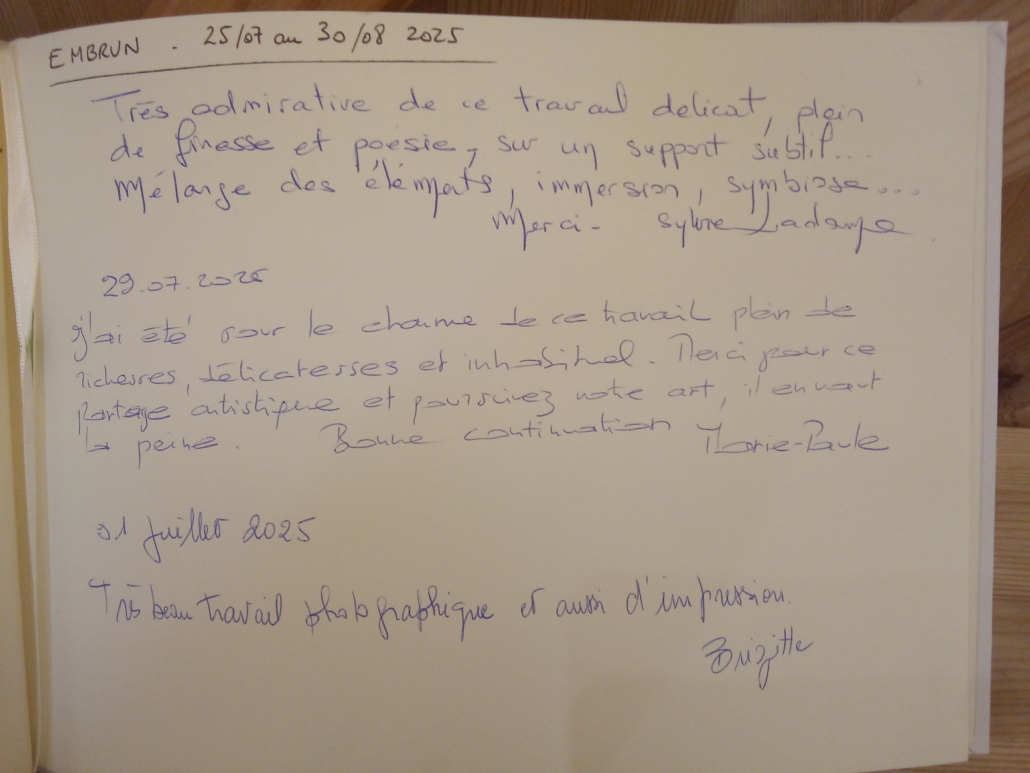 EMBRUN . 25/07 au 30/08 2025
Très admirative de ce travail délicat, plein
de finesse et poésie, sur un support subtil...
Mélange des éléments, immersion, symbiose...
Merci - Sylvie
29.07.2025
J'ai été sous le charme de ce travail plein de
richesses, délicatesses et inhabituel. Merci pour ce
partage artistique et poursuivez votre art, il en vaut
la peine. Bonne continuation Marie-Paule
31 Juillet 2025
Très beau travail photographique et aussi d'impression.
Brigitte